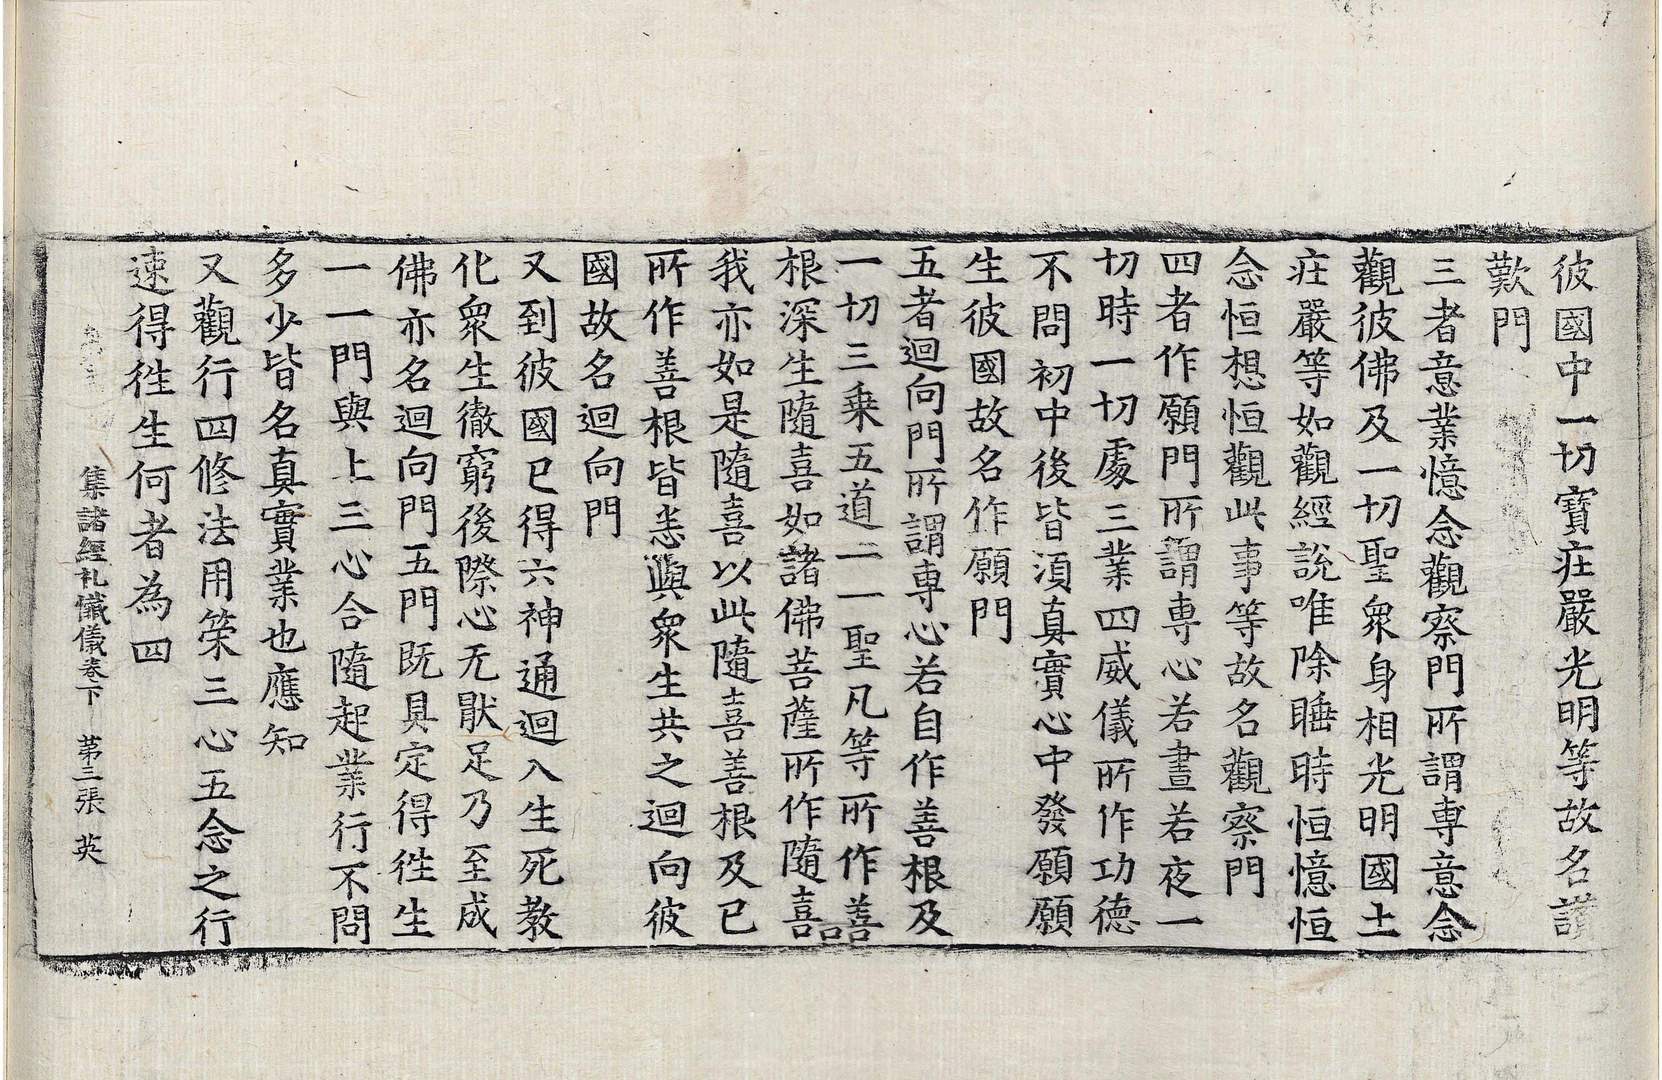 彼國中一切寶莊嚴光明等故名讃
歎門
三者意業憶念觀察門所謂專意念
觀彼佛及一切聖衆身相光明國土
莊嚴等如觀經說唯除睡時恒憶恒
念恒想恒觀此事等故名觀察門
四者作願門所謂專心若晝若夜一
切時一切處三業四威儀所作功德
不問初中後皆須真實心中發願願
生彼國故名作願門
五者迴向門所謂專心若自作善根及
一切三乗五道一一聖凡等所作善
根深生隨喜如諸佛菩薩所作隨喜
我亦如是隨喜以此隨喜善根及已
所作善根皆悉與衆生共之迴向彼
國故名迴向門
又到彼國已得六神通迴入生死教
化衆生徹窮後際心无猒足乃至成
佛亦名迴向門五門既具定得徃生
一一門與上三心合隨起業行不問
多少皆名真實業也應知
又觀行四修法用䇿三心五念之行
速得徃生何者為四
集諸經礼懺儀卷下 第三張 英